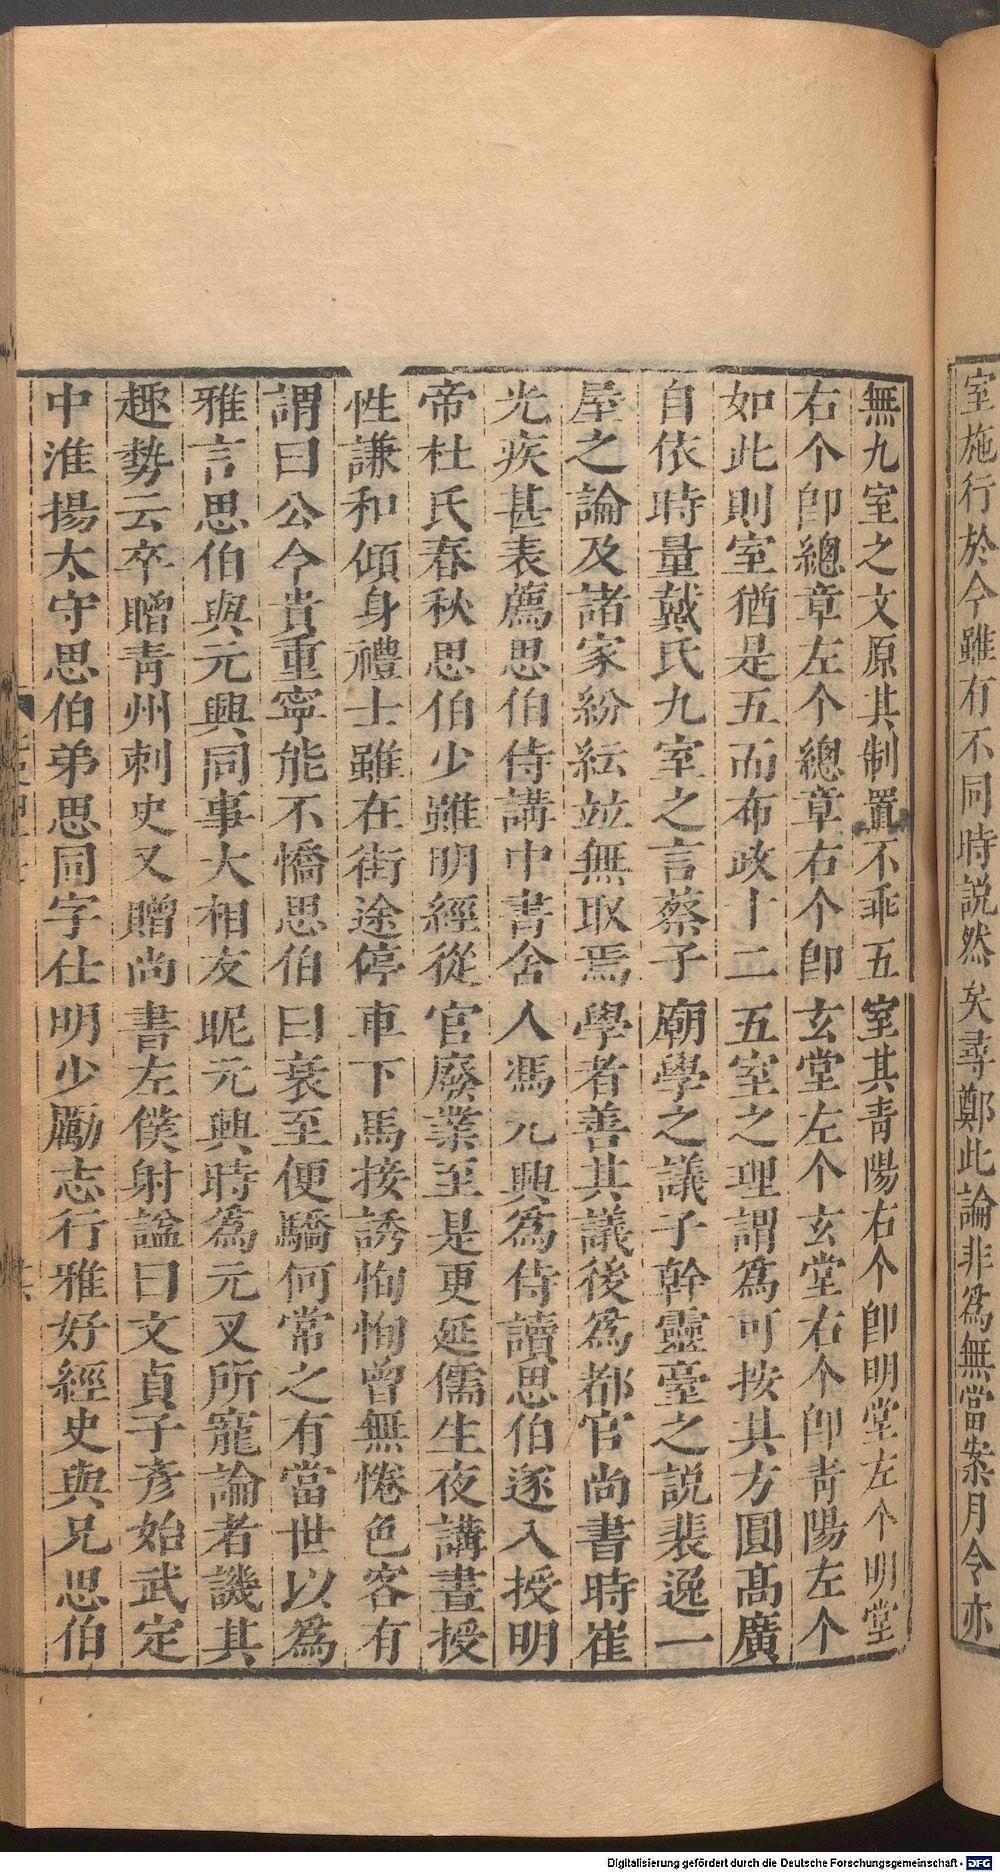 室施行於今雖有不同時說然矣尋鄭此論非爲無當案月令亦
無九室之文原其制置不乖五室其青陽右个卽明堂左个明堂
右个卽總章左个總章右个卽玄堂左个玄堂右个卽青陽左个
如此則室猶是五而布政十二五室之理謂爲可按其方圓高廣
自依時量戴氏九室之言蔡子廟學之議子幹靈臺之說裴逸一
屋之論及諸家紛紜竝無取焉學者善其議後爲都官尚書時崔
光疾甚表薦思伯侍講中書舍人馮元興爲侍讀思伯遂入授明
帝杜氏春秋思伯少雖明經從官廢業至是更延儒生夜講晝授
性謙和傾身禮士雖在街途停車下馬接誘恂恂曾無惓色客有
謂曰公今貴重寧能不憍思伯曰衰至便驕何常之有當世以爲
雅言思伯與元興同事大相友昵元興時爲元叉所寵論者譏其
趣勢云卒贈青州刺史又贈尚書左僕射諡曰文貞子彥始武定
中淮揚太守思伯弟思同字仕明少勵志行雅好經史與兄思伯
Digitalisierung gefördert durch die Deutsche Forschungsgemeinschaft - DFG